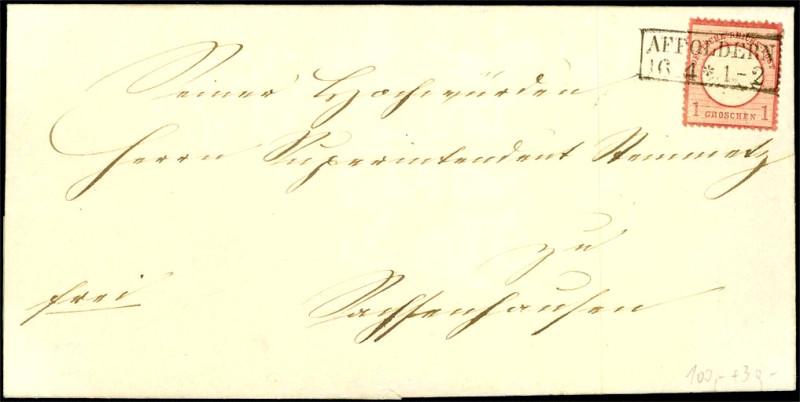 AFFOLDERN
16 4 * 1-2
1 GROSCHEN 1
Seiner Hochwürden
Herrn Superintendent Steinmetz
zu
frei
Sachsenhausen
100,- +3 9,-